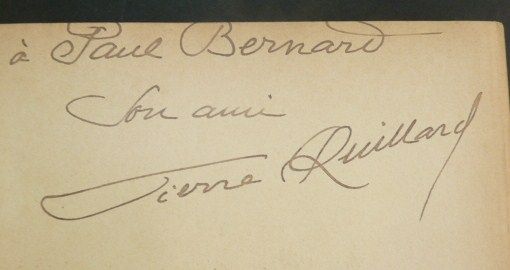 à Paul Bernard
Son ami
Pierre Quillard